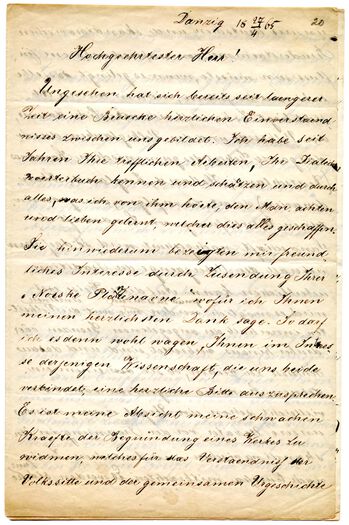 Danzig 18 27/4 65
20
Hochgeehrtester Herr!
Ungesehen hat sich bereits seit laengerer
Zeit eine Bruecke herzlichen Einverstaend
nisses zwischen uns gebildet. Ich habe seit
Jahren Ihre trefflichen Arbeiten, Ihr Dialekt
woerterbuch kennen und schätzen und durch
alles, was ich von ihm hoerte, den Man achten
und lieben gelernt, welcher dies alles geschaffen.
Sie hinwiederum bezeigten mir freund
liches Interesse durch Zusendung Ihrer
"Norske Plantenavne" wofür ich Ihnen
meinen herzlichsten Dank sage. So darf
ich es denn wohl wagen, Ihnen im Interes
se derjenigen Wissenschaft, die uns beide
verbindet, eine herzliche Bitte auszusprechen.
Es ist meine Absicht meine schwachen
Kraefte der Begründung eines Werkes zu
widmen, welches für das Verstaendniß der
Volkssitte und der gemeinsamen Urgeschichte